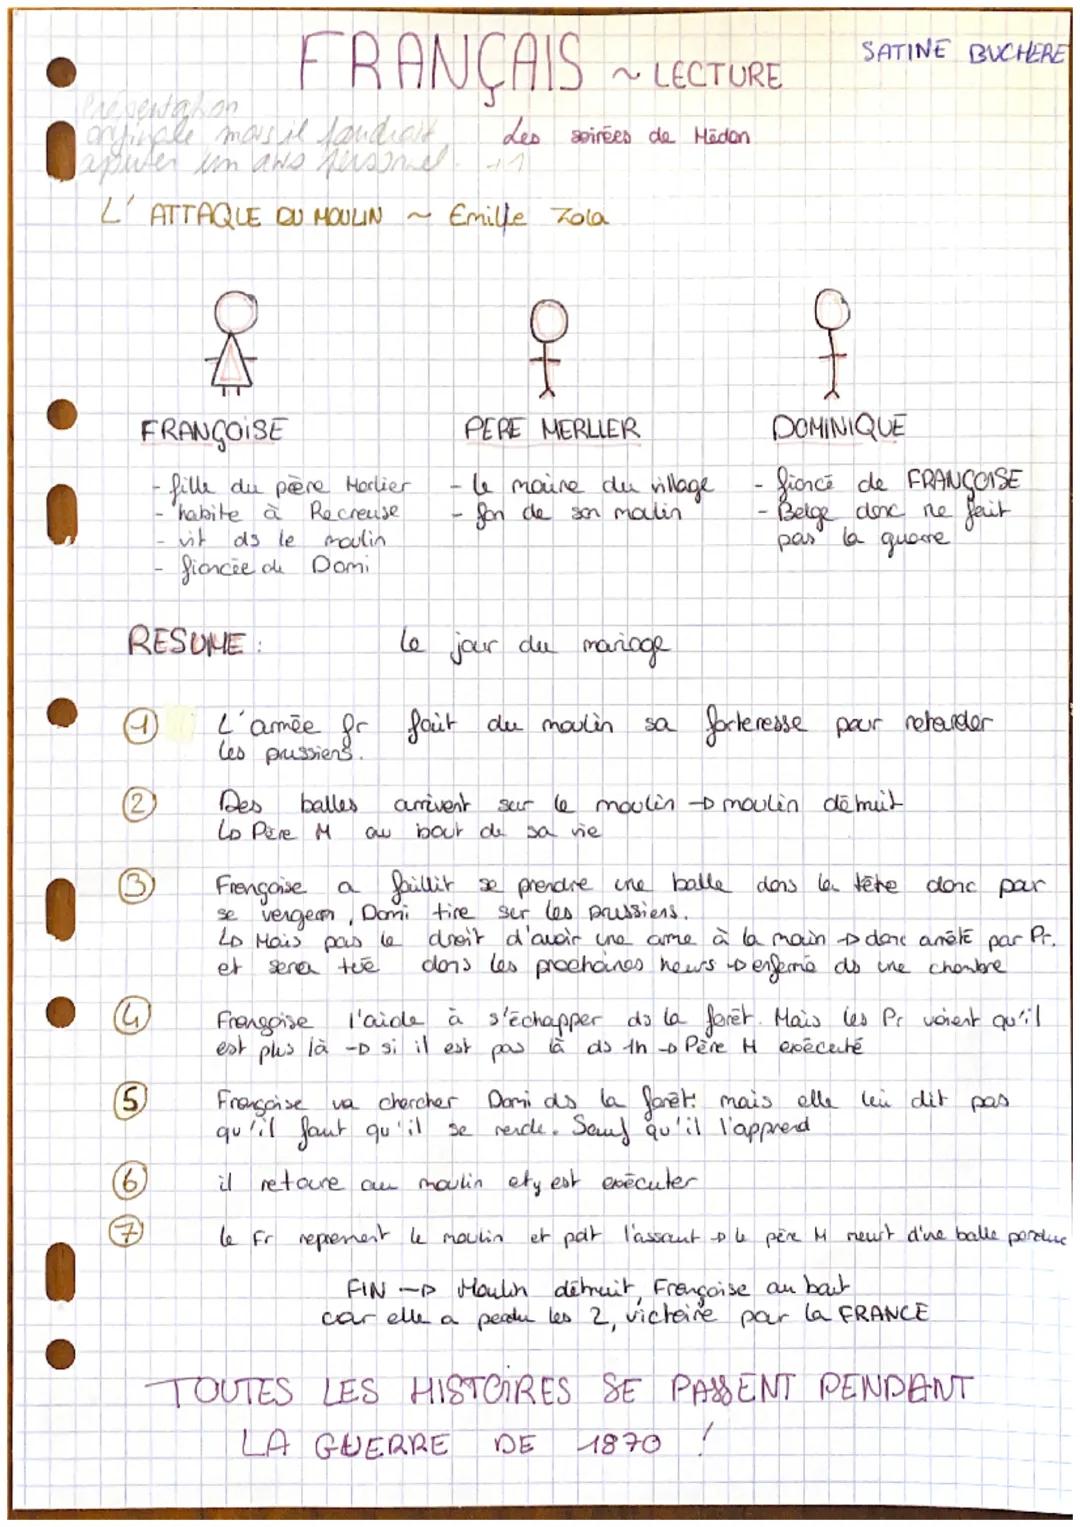 SATINE BUCHERE
FRANÇAIS ~ LECTURE
Présentation
originale mais il faudrait
ajouter un avis personnel. +1
Les soirées de Médan
L' ATTAQUE DU MOULIN ~ Emille Zola
FRANÇOISE
- fille du père Merlier
- habite à Recreuse
- vit ds le moulin
- fiancée de Domi
PERE MERLIER
- le maire du village
- fan de son moulin
DOMINIQUE
- fiancé de FRANÇOISE
- Belge donc ne fait
pas la guerre
RESUME : le jour du mariage
1 L'armée fr fait du moulin sa forteresse pour retarder
les prussiens.
2 Des balles arrivent sur le moulin → moulin détruit
↳ Père M au bout de sa vie
3 Françoise a faillit se prendre une balle dans la tête donc pour
se venger, Domi tire sur les prussiens.
↳ Mais pas le droit d'avoir une arme à la main → donc arrêté par Pr.
et sera tué dans les prochaines heurs → enfermé ds une chambre
4 Françoise l'aide à s'échapper ds la forêt. Mais les Pr voient qu'il
est plus là → si il est pas là ds 1h → Père M exécuté
5 Françoise va chercher Domi ds la forêt. mais elle lui dit pas
qu'il faut qu'il se rende. Sauf qu'il l'apprend
6 il retoure au moulin et y est exécuter
7 le Fr reprennent le moulin et pdt l'assaut → le père M meurt d'une balle perdue
FIN → Moulin détruit, Françoise au bout
car elle a perdu les 2, victoire pour la FRANCE
TOUTES LES HISTOIRES SE PASSENT PENDANT
LA GUERRE DE 1870 !